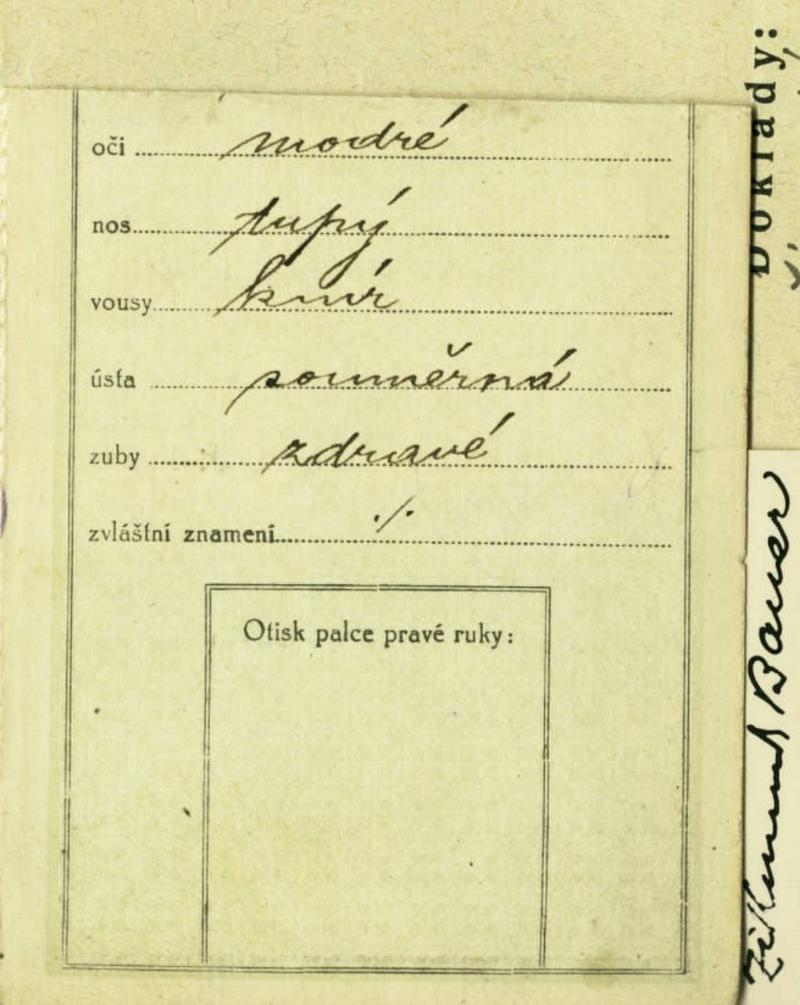 oči modré
nos tupý
vousy knír
ústa souměrná
zuby zdravé
zvláštní znamení ./.
Otisk palce pravé ruky:
Doklady:
Zikmund Bauer